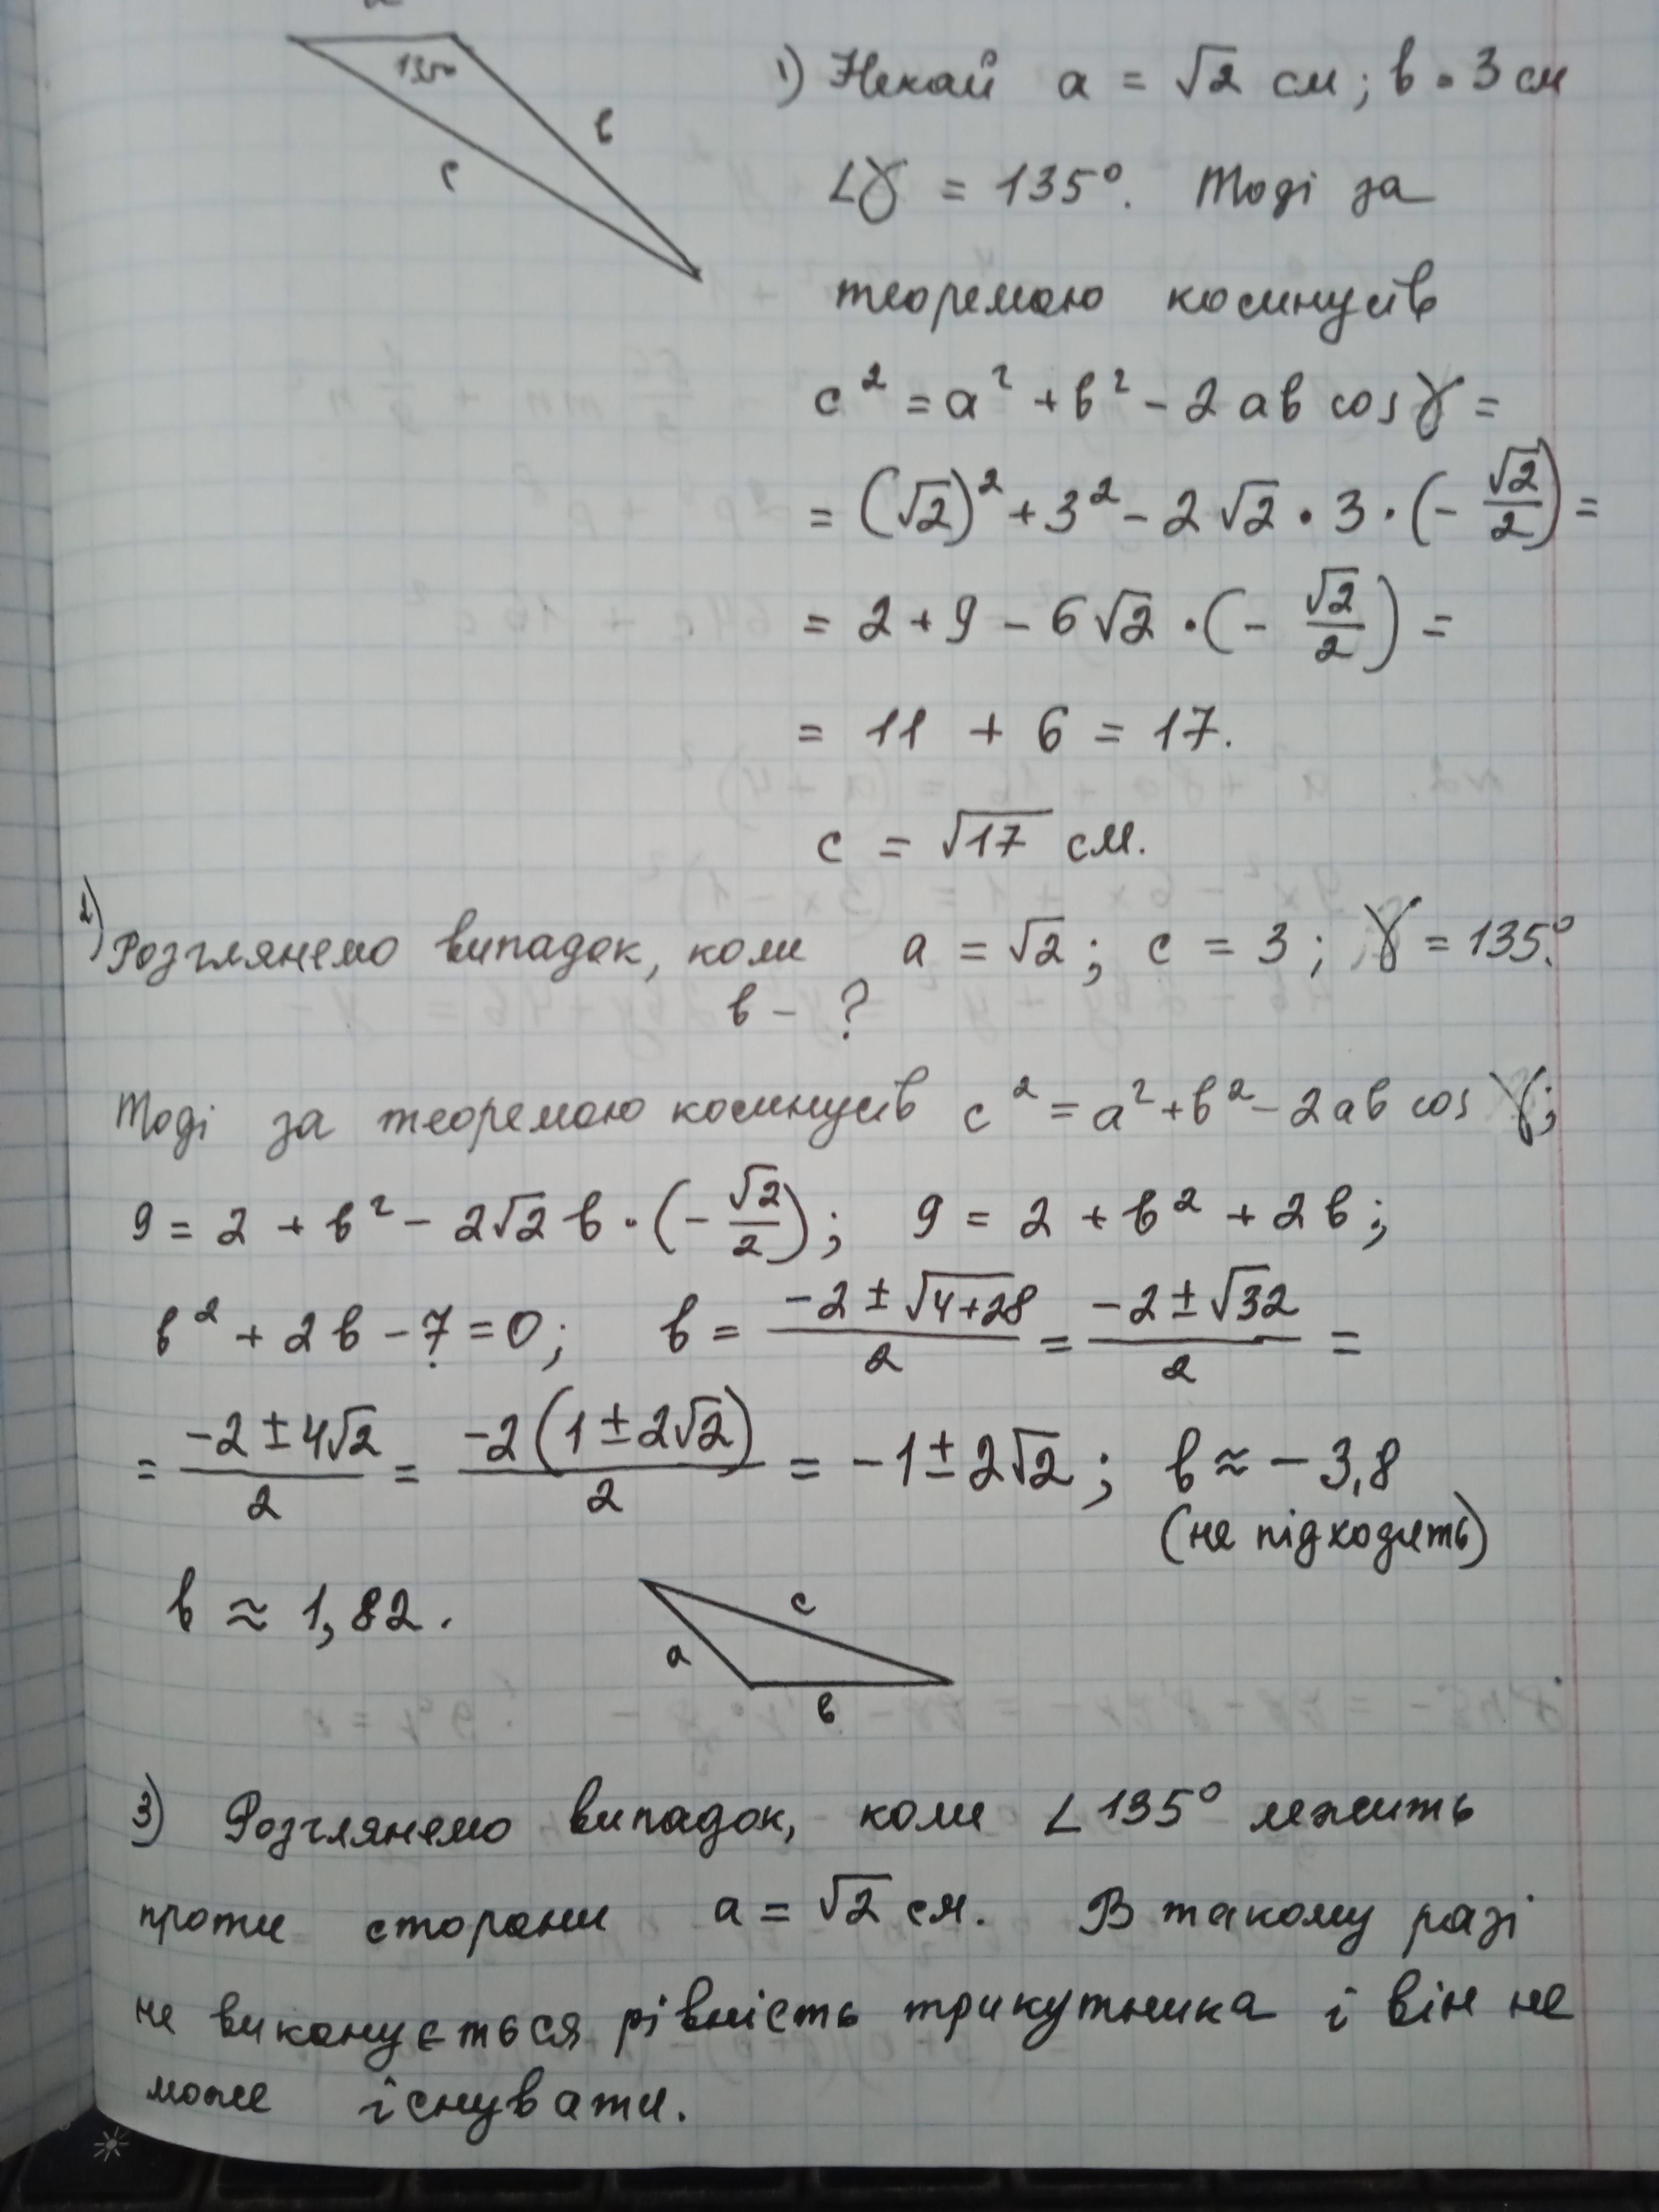 135°
в
с
1) Нехай a = √2 см; в = 3 см
∠γ = 135°. Тоді за
теоремою косинусів
c² = a² + в² - 2 aв cos γ =
= (√2)² + 3² - 2√2 · 3 · (- √2/2) =
= 2 + 9 - 6√2 · (- √2/2) =
= 11 + 6 = 17.
c = √17 см.
2) Розглянемо випадок, коли a = √2; c = 3; γ = 135°.
в - ?
Тоді за теоремою косинусів c² = a² + в² - 2aв cos γ;
9 = 2 + в² - 2√2 в · (- √2/2); 9 = 2 + в² + 2в;
в² + 2в - 7 = 0; в = (-2 ± √4+28)/2 = (-2 ± √32)/2 =
= (-2 ± 4√2)/2 = -2(1 ± 2√2)/2 = -1 ± 2√2; в ≈ -3,8
(не підходить)
в ≈ 1,82.
c
a
в
3) Розглянемо випадок, коли ∠135° лежить
проти сторони a = √2 см. В такому разі
не виконується рівність трикутника і він не
може існувати.